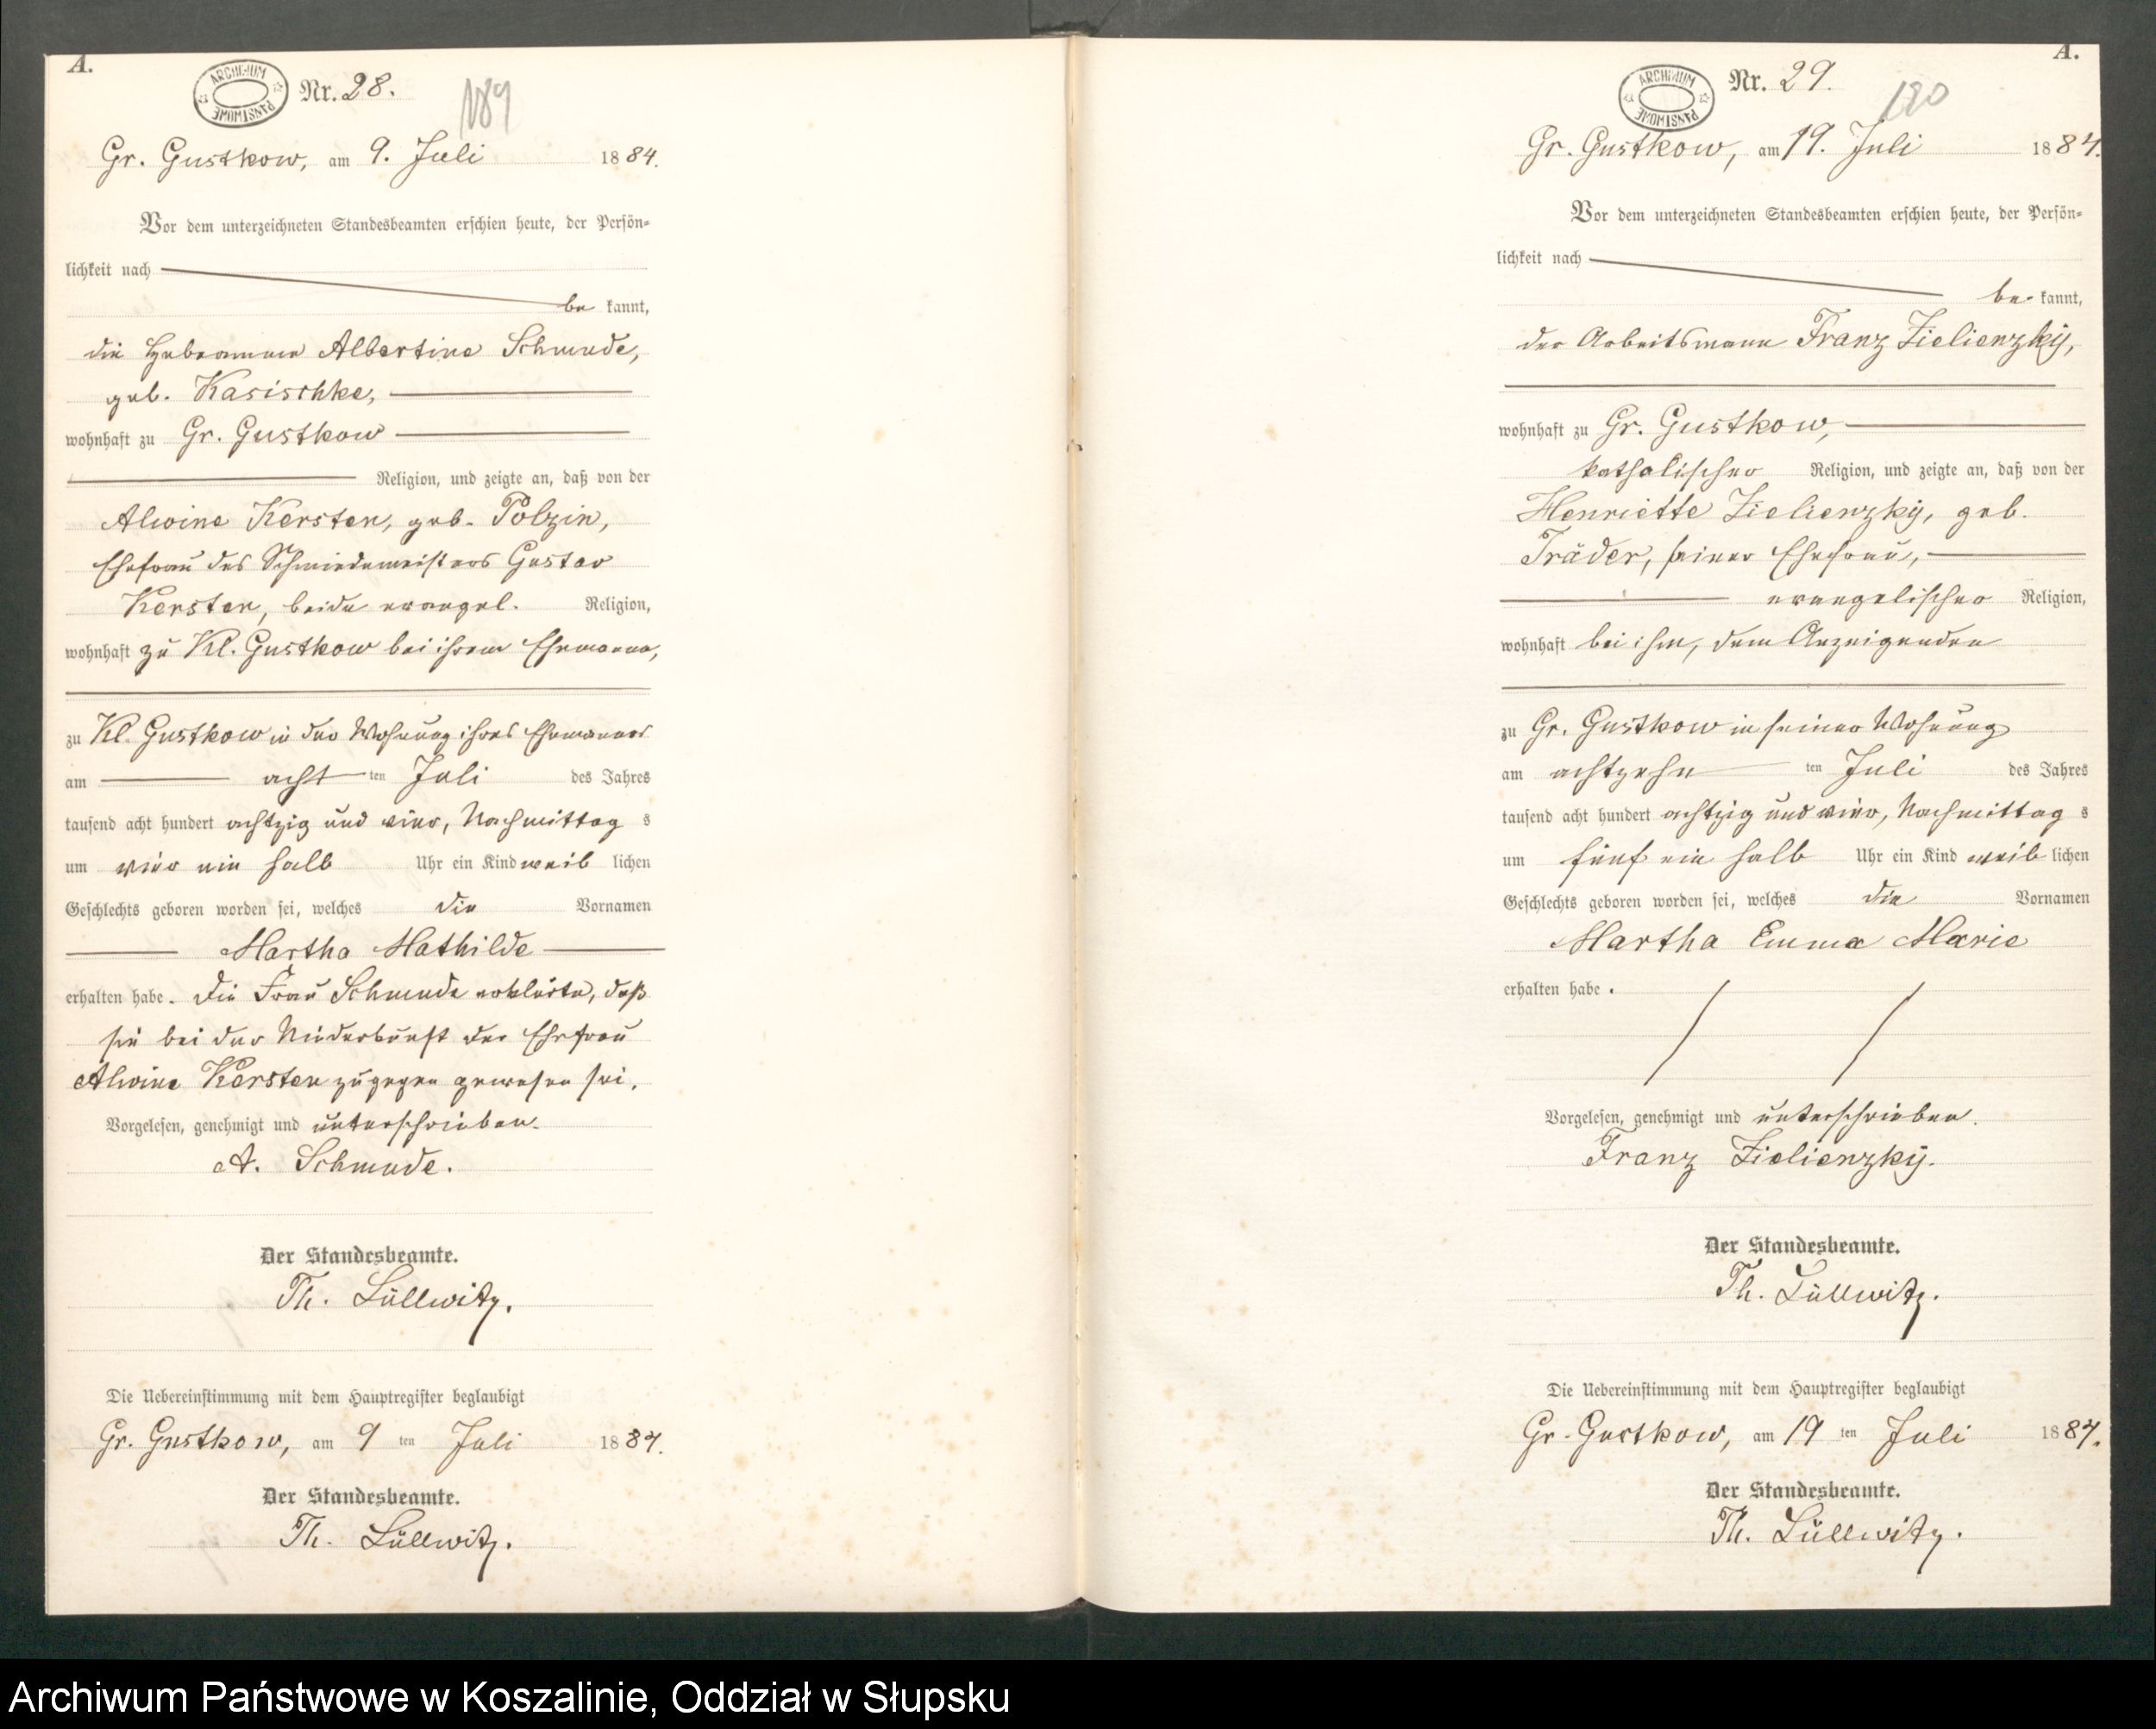 A.
ARCHIWUM PAŃSTWOWE
Nr. 28.
189
Gr. Gustkow, am 9. Juli 1884.
Vor dem unterzeichneten Standesbeamten erschien heute, der Persön-
lichkeit nach
be kannt,
die Hebeamme Albertine Schmude,
geb. Kasischke,
wohnhaft zu Gr. Gustkow
Religion, und zeigte an, daß von der
Alwine Kersten, geb. Polzin,
Ehefrau des Schmiedemeisters Gustav
Kersten, beide evangel. Religion,
wohnhaft zu Kl. Gustkow bei ihrem Ehemanne,
zu Kl. Gustkow in der Wohnung ihres Ehemannes
am acht ten Juli des Jahres
tausend acht hundert achtzig und vier, Nachmittag s
um vier ein halb Uhr ein Kind weib lichen
Geschlechts geboren worden sei, welches die Vornamen
Martha Mathilde
erhalten habe. Die Frau Schmude erklärte, daß
sie bei der Niederkunft der Ehefrau
Alwine Kersten zugegen gewesen sei.
Vorgelesen, genehmigt und unterschrieben.
A. Schmude.
Der Standesbeamte.
Th. Lüllwitz.
Die Uebereinstimmung mit dem Hauptregister beglaubigt
Gr. Gustkow, am 9 ten Juli 1884.
Der Standesbeamte.
Th. Lüllwitz.
A.
ARCHIWUM PAŃSTWOWE
Nr. 29.
Gr. Gustkow, am 19. Juli 1884.
Vor dem unterzeichneten Standesbeamten erschien heute, der Persön-
lichkeit nach
be- kannt,
der Arbeitsmann Franz Zielienzky,
wohnhaft zu Gr. Gustkow,
katholischer Religion, und zeigte an, daß von der
Henriette Zielienzky, geb.
Träder, seiner Ehefrau,
evangelischer Religion,
wohnhaft bei ihm, dem Anzeigenden
zu Gr. Gustkow in seiner Wohnung
am achtzehn ten Juli des Jahres
tausend acht hundert achtzig und vier, Nachmittag s
um fünf ein halb Uhr ein Kind weib lichen
Geschlechts geboren worden sei, welches die Vornamen
Martha Emma Marie
erhalten habe.
Vorgelesen, genehmigt und unterschrieben.
Franz Zielienzky.
Der Standesbeamte.
Th. Lüllwitz.
Die Uebereinstimmung mit dem Hauptregister beglaubigt
Gr. Gustkow, am 19 ten Juli 1884.
Der Standesbeamte.
Th. Lüllwitz.
Archiwum Państwowe w Koszalinie, Oddział w Słupsku